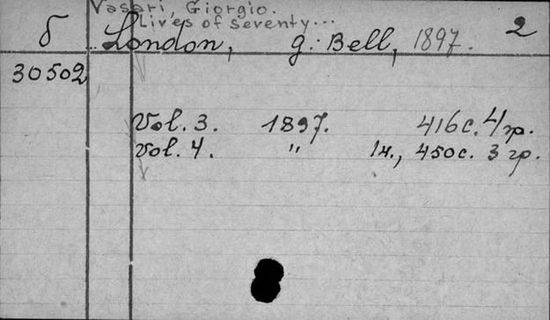 Vasari, Giorgio.
Lives of seventy...
б London, G. Bell, 1897. 2
30502
Vol. 3. 1897. 416 с. 4 гр.
Vol. 4. " 1 н., 450 с. 3 гр.